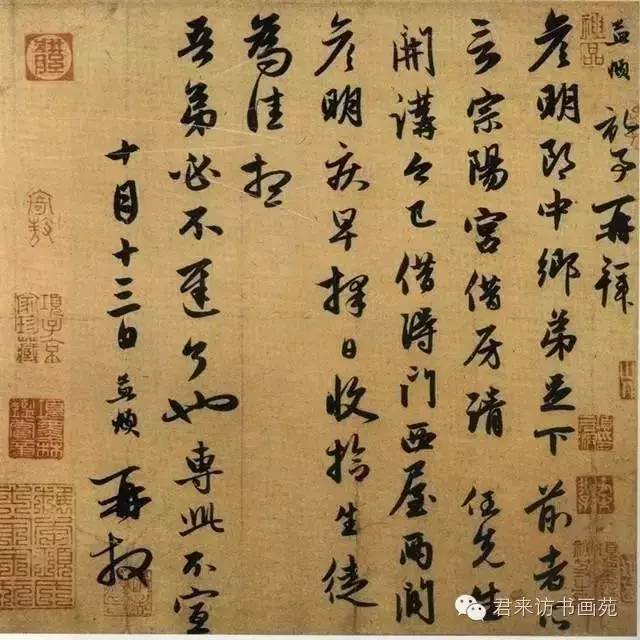 孟頫 再拜
彦明郎中鄉弟足下前者所
言宗陽宮借房請 任先生
開講今已借得門西屋兩間
彦明疾早擇日收拾生徒
為佳想
吾弟必不遲了也專此不宣
十月十三日孟頫再拜
項子京家珍藏
君来访书画苑